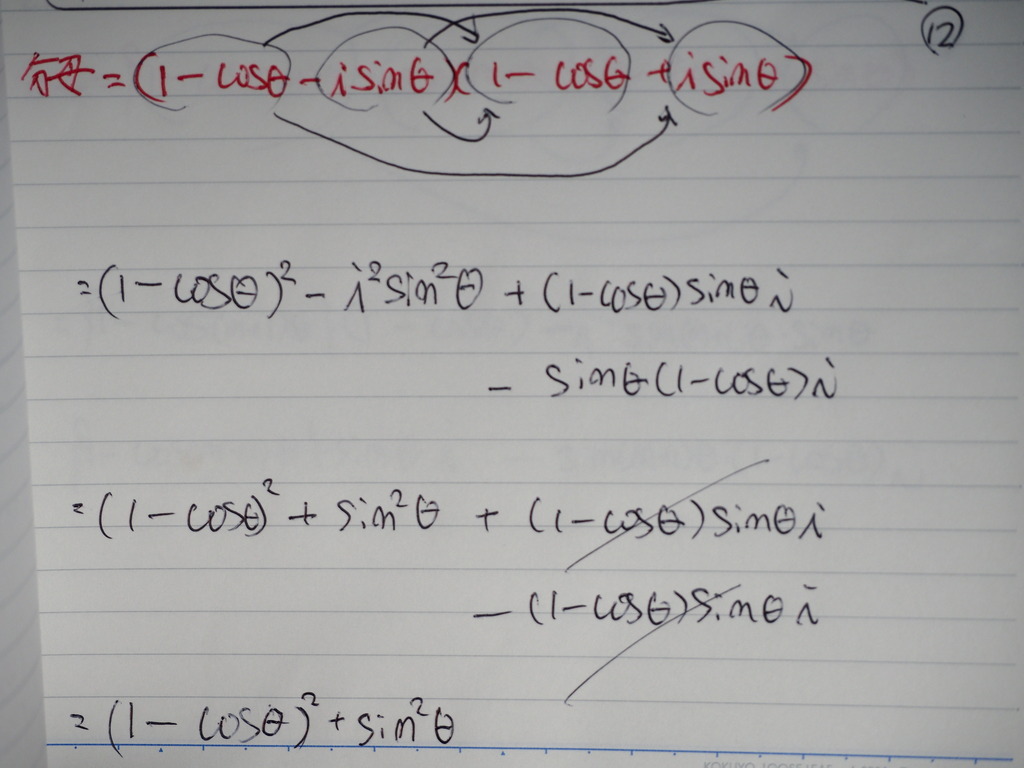 ⑫
分母 = (1 - cosθ - i sinθ)(1 - cosθ + i sinθ)
= (1 - cosθ)² - i² sin²θ + (1-cosθ) sinθ i
- sinθ (1-cosθ) i
= (1 - cosθ)² + sin²θ + (1-cosθ) sinθ i
- (1-cosθ) sinθ i
= (1 - cosθ)² + sin²θ